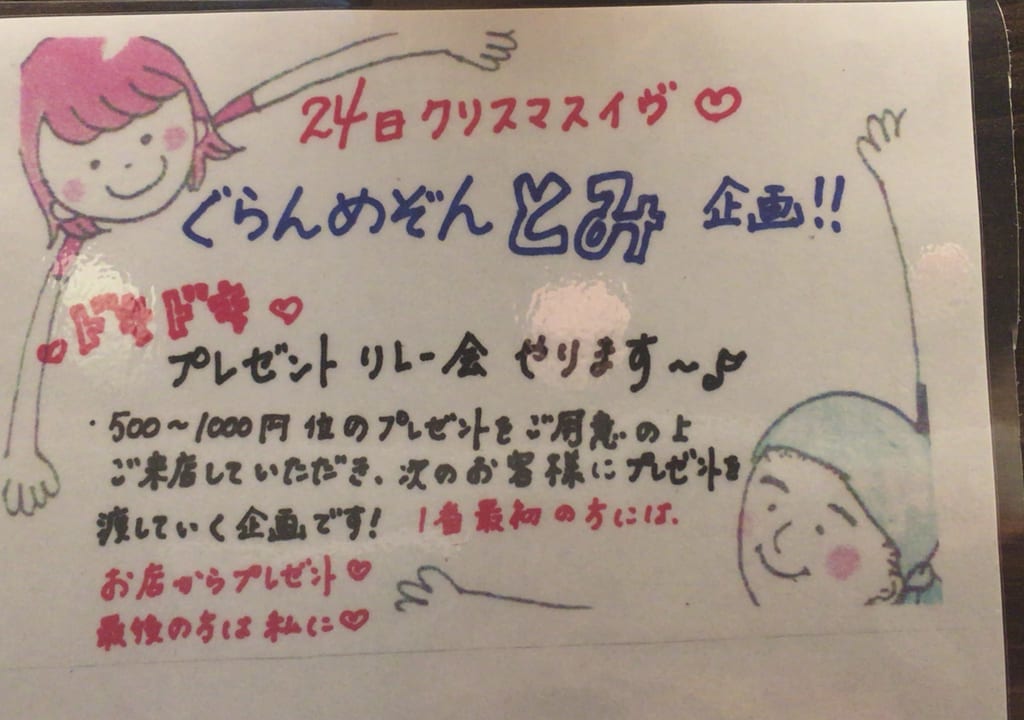 24日クリスマスイヴ♡
ぐらんめぞんとみ企画!!
♡ドキドキ♡
プレゼントリレー会 やります～♪
・500～1000円位のプレゼントをご用意の上
ご来店していただき、次のお客様にプレゼントを
渡していく企画です! 1番最初の方には、
お店からプレゼント♡
最後の方は私に♡